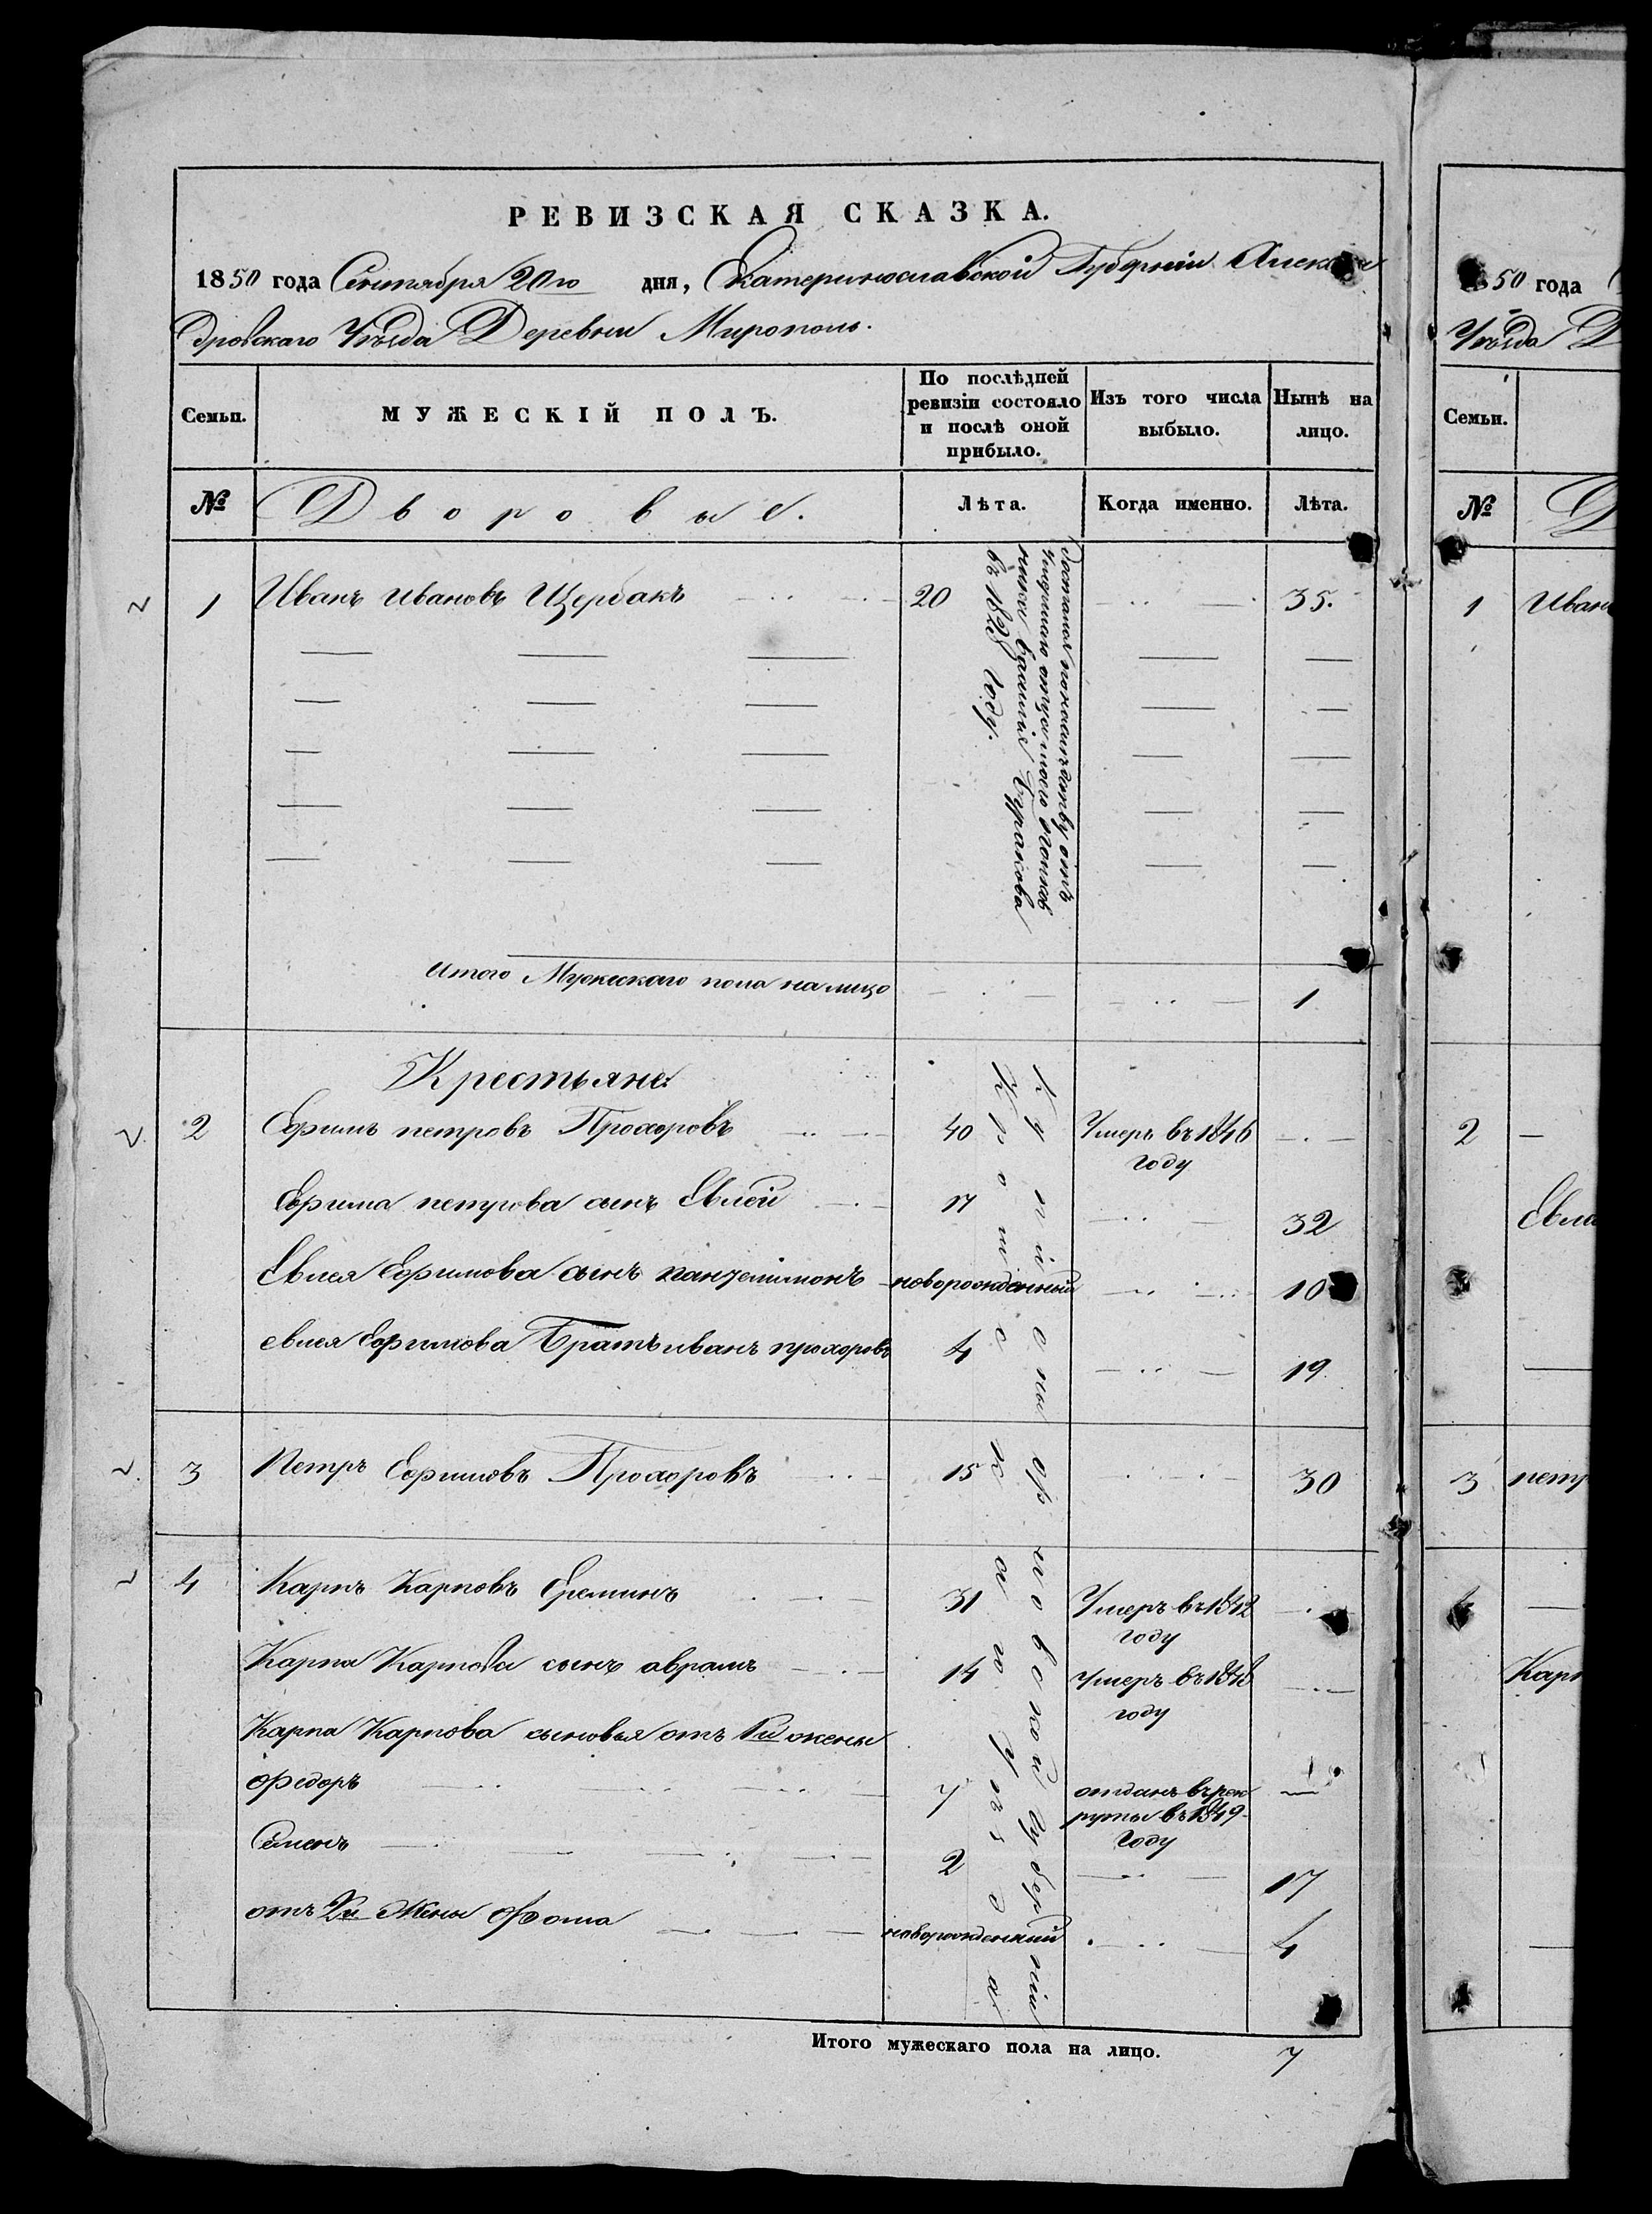 РЕВИЗСКАЯ СКАЗКА.
1850 года Сентября 20го дня, Екатеринославской Губерніи Алексан
дровскаго Уѣзда Деревни Мирополь.
Семьи.
МУЖЕСКІЙ ПОЛЪ.
По послѣдней ревизіи состояло и послѣ оной прибыло.
Изъ того числа выбыло.
Нынѣ на лицо.
№
Дворовые.
Лѣта.
Когда именно.
Лѣта.
1 Иванъ Ивановъ Щербакъ 20 35.
въ 1828 году.
Итого Мужескаго пола на лицо 1
Крестьяне
2 Ефимъ петровъ Прохоровъ 40 Умеръ въ 1846
году
Ефима петрова сынъ Евлей 17 32
Евлея Ефимова сынъ пантелимонъ новорожденный 10
евлея Ефимова Братъ иванъ прохоровъ 4 19
3 Петръ Ефимовъ Прохоровъ 15 30
4 Карпъ Карповъ Ереминъ 31 Умеръ въ 1842
году
Карпа Карпова сынъ аврамъ 14 умеръ въ 1848
году
Карпа Карпова сыновья отъ 1й жены
Федоръ 7 отданъ въ рек
руты въ 1849
году
Семенъ 2 17
отъ 2й Жены Фома новорожденный 4
Куплены Херсонской губерніи
уѣзда
Итого мужескаго пола на лицо. 7
1850 года
Уѣзда Д
Семьи.
№ Д
1 Иван
2
Евле
3 петр
4
Карп